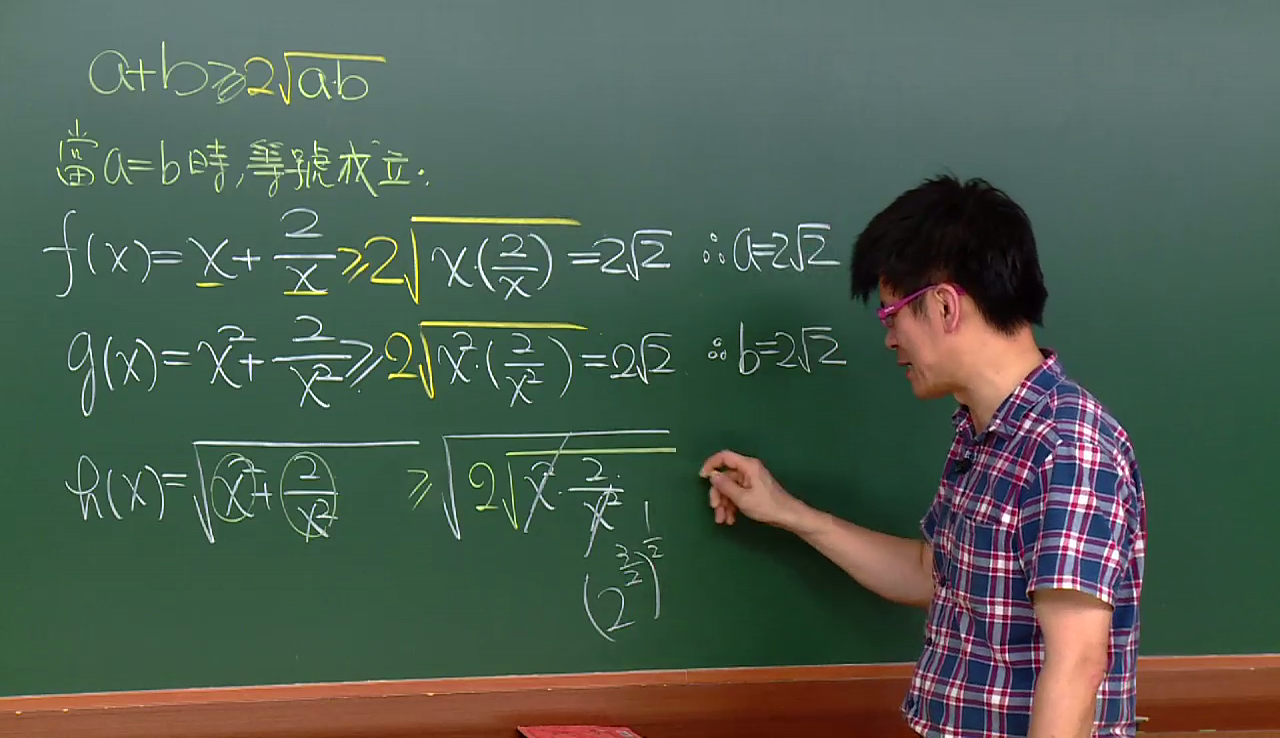 a+b≥2√(a·b)
當a=b時,等號成立.
f(x)=x+2/x≥2√(x·(2/x))=2√2 ∴a=2√2
g(x)=x²+2/x²≥2√(x²·(2/x²))=2√2 ∴b=2√2
h(x)=√(x²+2/x²) ≥√(2√(x²·2/x²))
(2^(3/2))^(1/2)